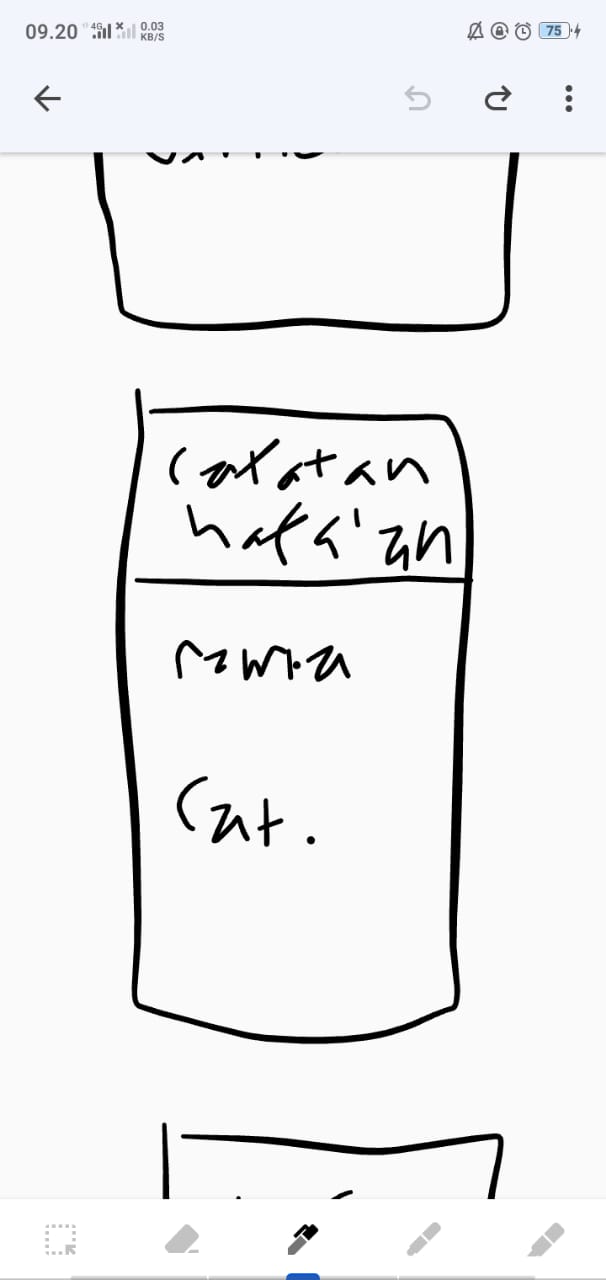 09.20 4G 0.03 KB/S 75
Catatan
hafa'an
nama
Cat.